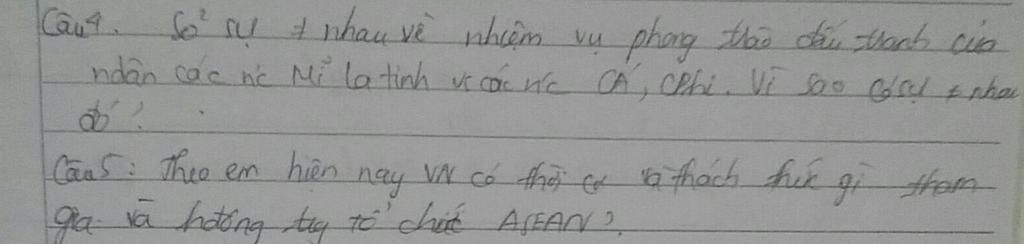 Câu 4. Sơ² sự ≠ nhau về nhiệm vụ phong thào đấu thanh của
ndân các nc Mĩ la tinh vs các nc CÁ, CPhi. Vì sao có sự ≠ nhau
đó?
Câu 5: Theo em hiện nay VN có thời cơ và thách thức gì tham
gia và hướng tổ chức ASEAN?